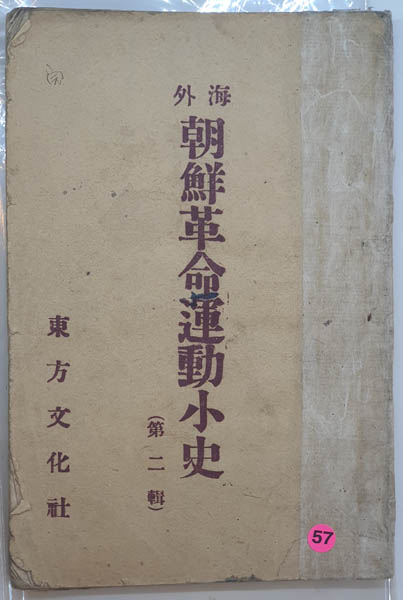 海外
朝鮮革命運動小史
(第二輯)
東方文化社
57